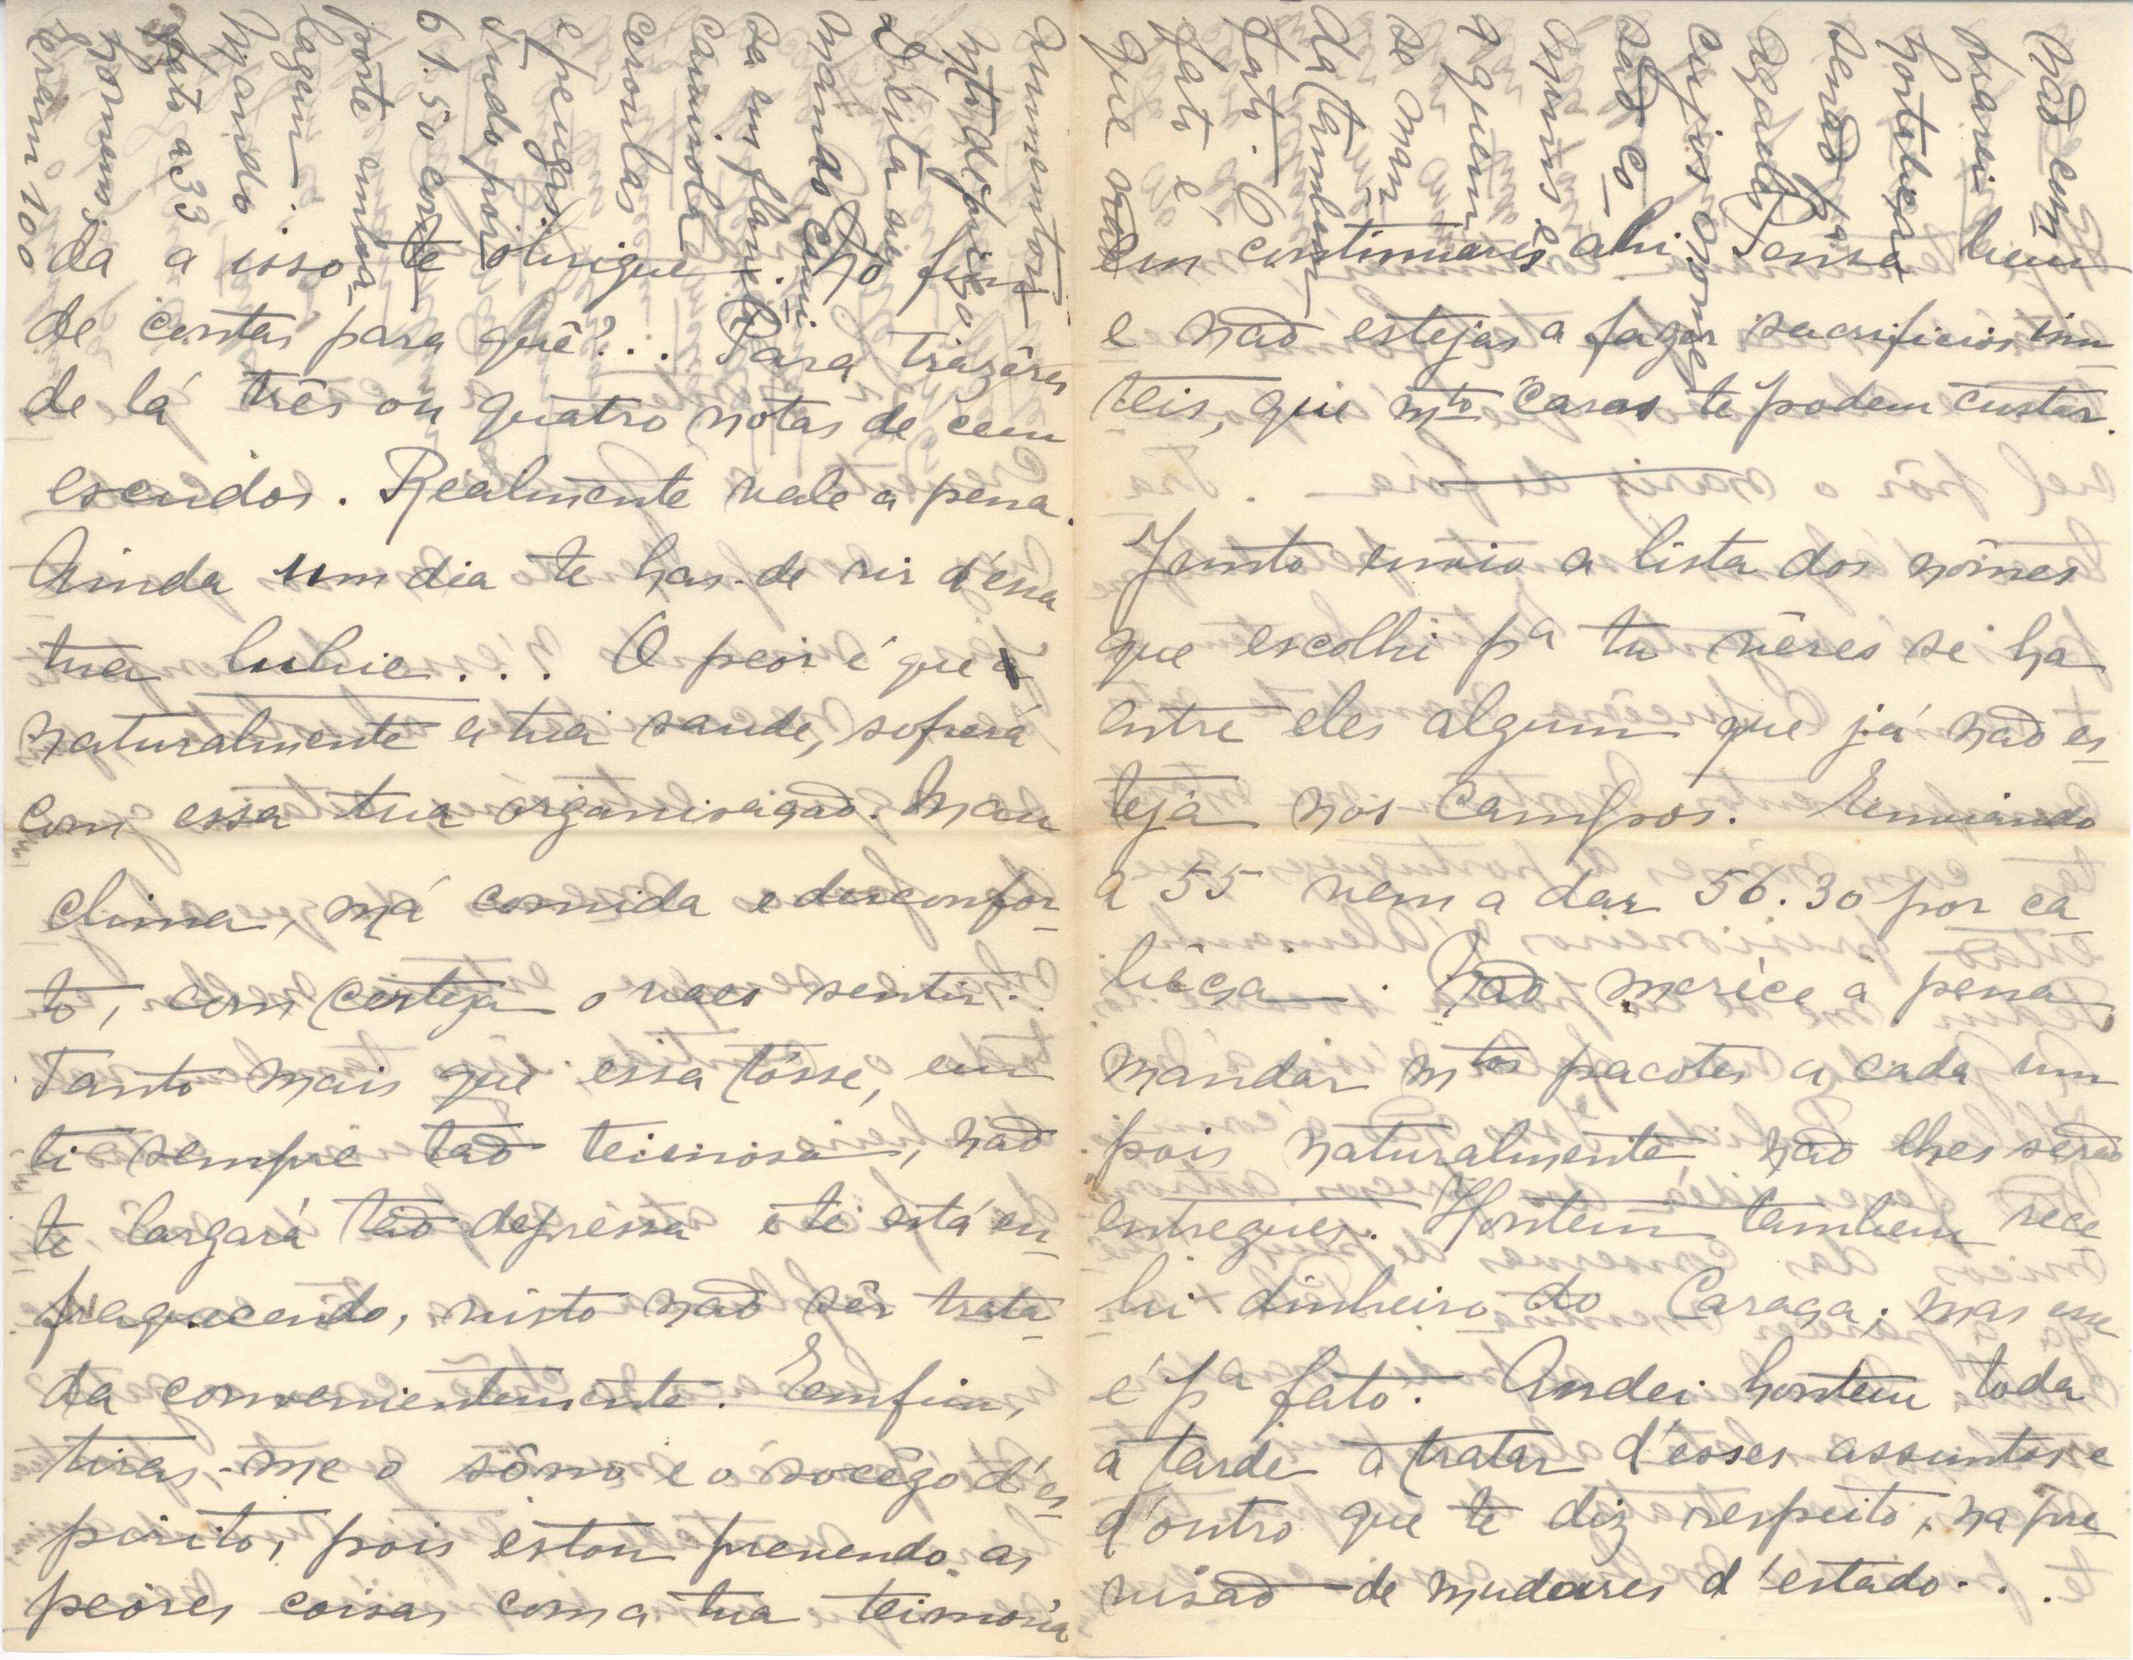 da a isso te obrigue. No fim
de contas para quê?... Para trazêres
de lá três ou quatro notas de cem
escudos. Realmente vale a pena.
Ainda um dia te has-de rir d'essa
tua lubie... O peor é que
naturalmente a tua saude, sofrerá
com essa tua organisação. Mau
clima, má comida e desconfor-
to, com certeza o vaes sentir.
Tanto mais que essa tósse, em
ti sempre tão teimosa, não
te largará tão depressa e te está en-
fraquecendo, visto não sêr trata-
da convenientemente. Emfim,
tiras-me o sôno e o socêgo d'es-
pirito, pois estou prevendo as
peores coisas com a tua teimosia
em continuares ahi. Pensa bem
e não estejas a fazer sacrificios inu-
teis, que mto caros te podem custar.
Junto envio a lista dos nômes
que escolhi pa tu vêres se ha
entre eles algum que já não es-
teja nos campos. Enviando
a 55 vem a dar 56.30 por ca-
bêça. Não merece a pena
mandar mtos pacotes a cada um
pois naturalmente, não lhes serão
entregues. Hontem tambem rece-
bi dinheiro do Caraça; mas esse
é pa fato. Andei hontem toda
a tarde a tratar d'esses assuntos e
d'outro que te diz respeito, na pre-
visão de mudares d'estado...
aumentou
mto de preço
D'esta vez
mando cami-
sa em flanela
camisola
ceroulas
e peugas
tudo por
61.50 com
porte emba-
lagem.
Mando
fato a 33
homens;
serem 100
não em-
viarei
hortaliça
senão pa
aquêles
cujos nomes
são co-
muns e
a quem
se man-
da tambem
fato. O
fato é
que não